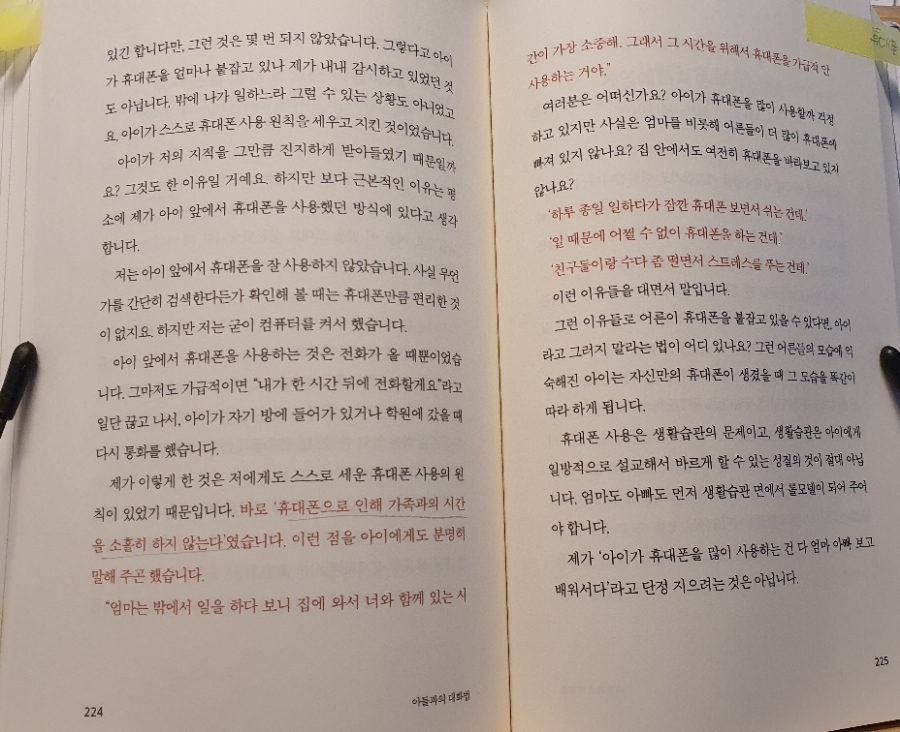 있긴 합니다만, 그런 것은 몇 번 되지 않았습니다. 그렇다고 아이
가 휴대폰을 얼마나 붙잡고 있나 제가 내내 감시하고 있었던 것
도 아닙니다. 밖에 나가 일하느라 그럴 수 있는 상황도 아니었고
요. 아이가 스스로 휴대폰 사용 원칙을 세우고 지킨 것이었습니다.
아이가 저의 지적을 그만큼 진지하게 받아들였기 때문일까
요? 그것도 한 이유일 거예요. 하지만 보다 근본적인 이유는 평
소에 제가 아이 앞에서 휴대폰을 사용했던 방식에 있다고 생각
합니다.
저는 아이 앞에서 휴대폰을 잘 사용하지 않았습니다. 사실 무언
가를 간단히 검색한다든가 확인해 볼 때는 휴대폰만큼 편리한 것
이 없지요. 하지만 저는 굳이 컴퓨터를 켜서 했습니다.
아이 앞에서 휴대폰을 사용하는 것은 전화가 올 때뿐이었습
니다. 그마저도 가급적이면 “내가 한 시간 뒤에 전화할게요”라고
일단 끊고 나서, 아이가 자기 방에 들어가 있거나 학원에 갔을 때
다시 통화를 했습니다.
제가 이렇게 한 것은 저에게도 스스로 세운 휴대폰 사용의 원
칙이 있었기 때문입니다. 바로 ‘휴대폰으로 인해 가족과의 시간
을 소홀히 하지 않는다’였습니다. 이런 점을 아이에게도 분명히
말해 주곤 했습니다.
“엄마는 밖에서 일을 하다 보니 집에 와서 너와 함께 있는 시
224
아들과의 대화법
간이 가장 소중해. 그래서 그 시간을 위해서 휴대폰을 가급적 안
사용하는 거야.”
여러분은 어떠신가요? 아이가 휴대폰을 많이 사용할까 걱정
하고 있지만 사실은 엄마를 비롯해 어른들이 더 많이 휴대폰에
빠져 있지 않나요? 집 안에서도 여전히 휴대폰을 바라보고 있지
않나요?
‘하루 종일 일하다가 잠깐 휴대폰 보면서 쉬는 건데.’
‘일 때문에 어쩔 수 없이 휴대폰을 하는 건데.’
‘친구들이랑 수다 좀 떨면서 스트레스를 푸는 건데.’
이런 이유들을 대면서 말입니다.
그런 이유들로 어른이 휴대폰을 붙잡고 있을 수 있다면, 아이
라고 그러지 말라는 법이 어디 있나요? 그런 어른들의 모습에 익
숙해진 아이는 자신만의 휴대폰이 생겼을 때 그 모습을 똑같이
따라 하게 됩니다.
휴대폰 사용은 생활습관의 문제이고, 생활습관은 아이에게
일방적으로 설교해서 바르게 할 수 있는 성질의 것이 절대 아닙
니다. 엄마도 아빠도 먼저 생활습관 면에서 롤모델이 되어 주어
야 합니다.
제가 ‘아이가 휴대폰을 많이 사용하는 건 다 엄마 아빠 보고
배워서다’라고 단정 지으려는 것은 아닙니다.
225